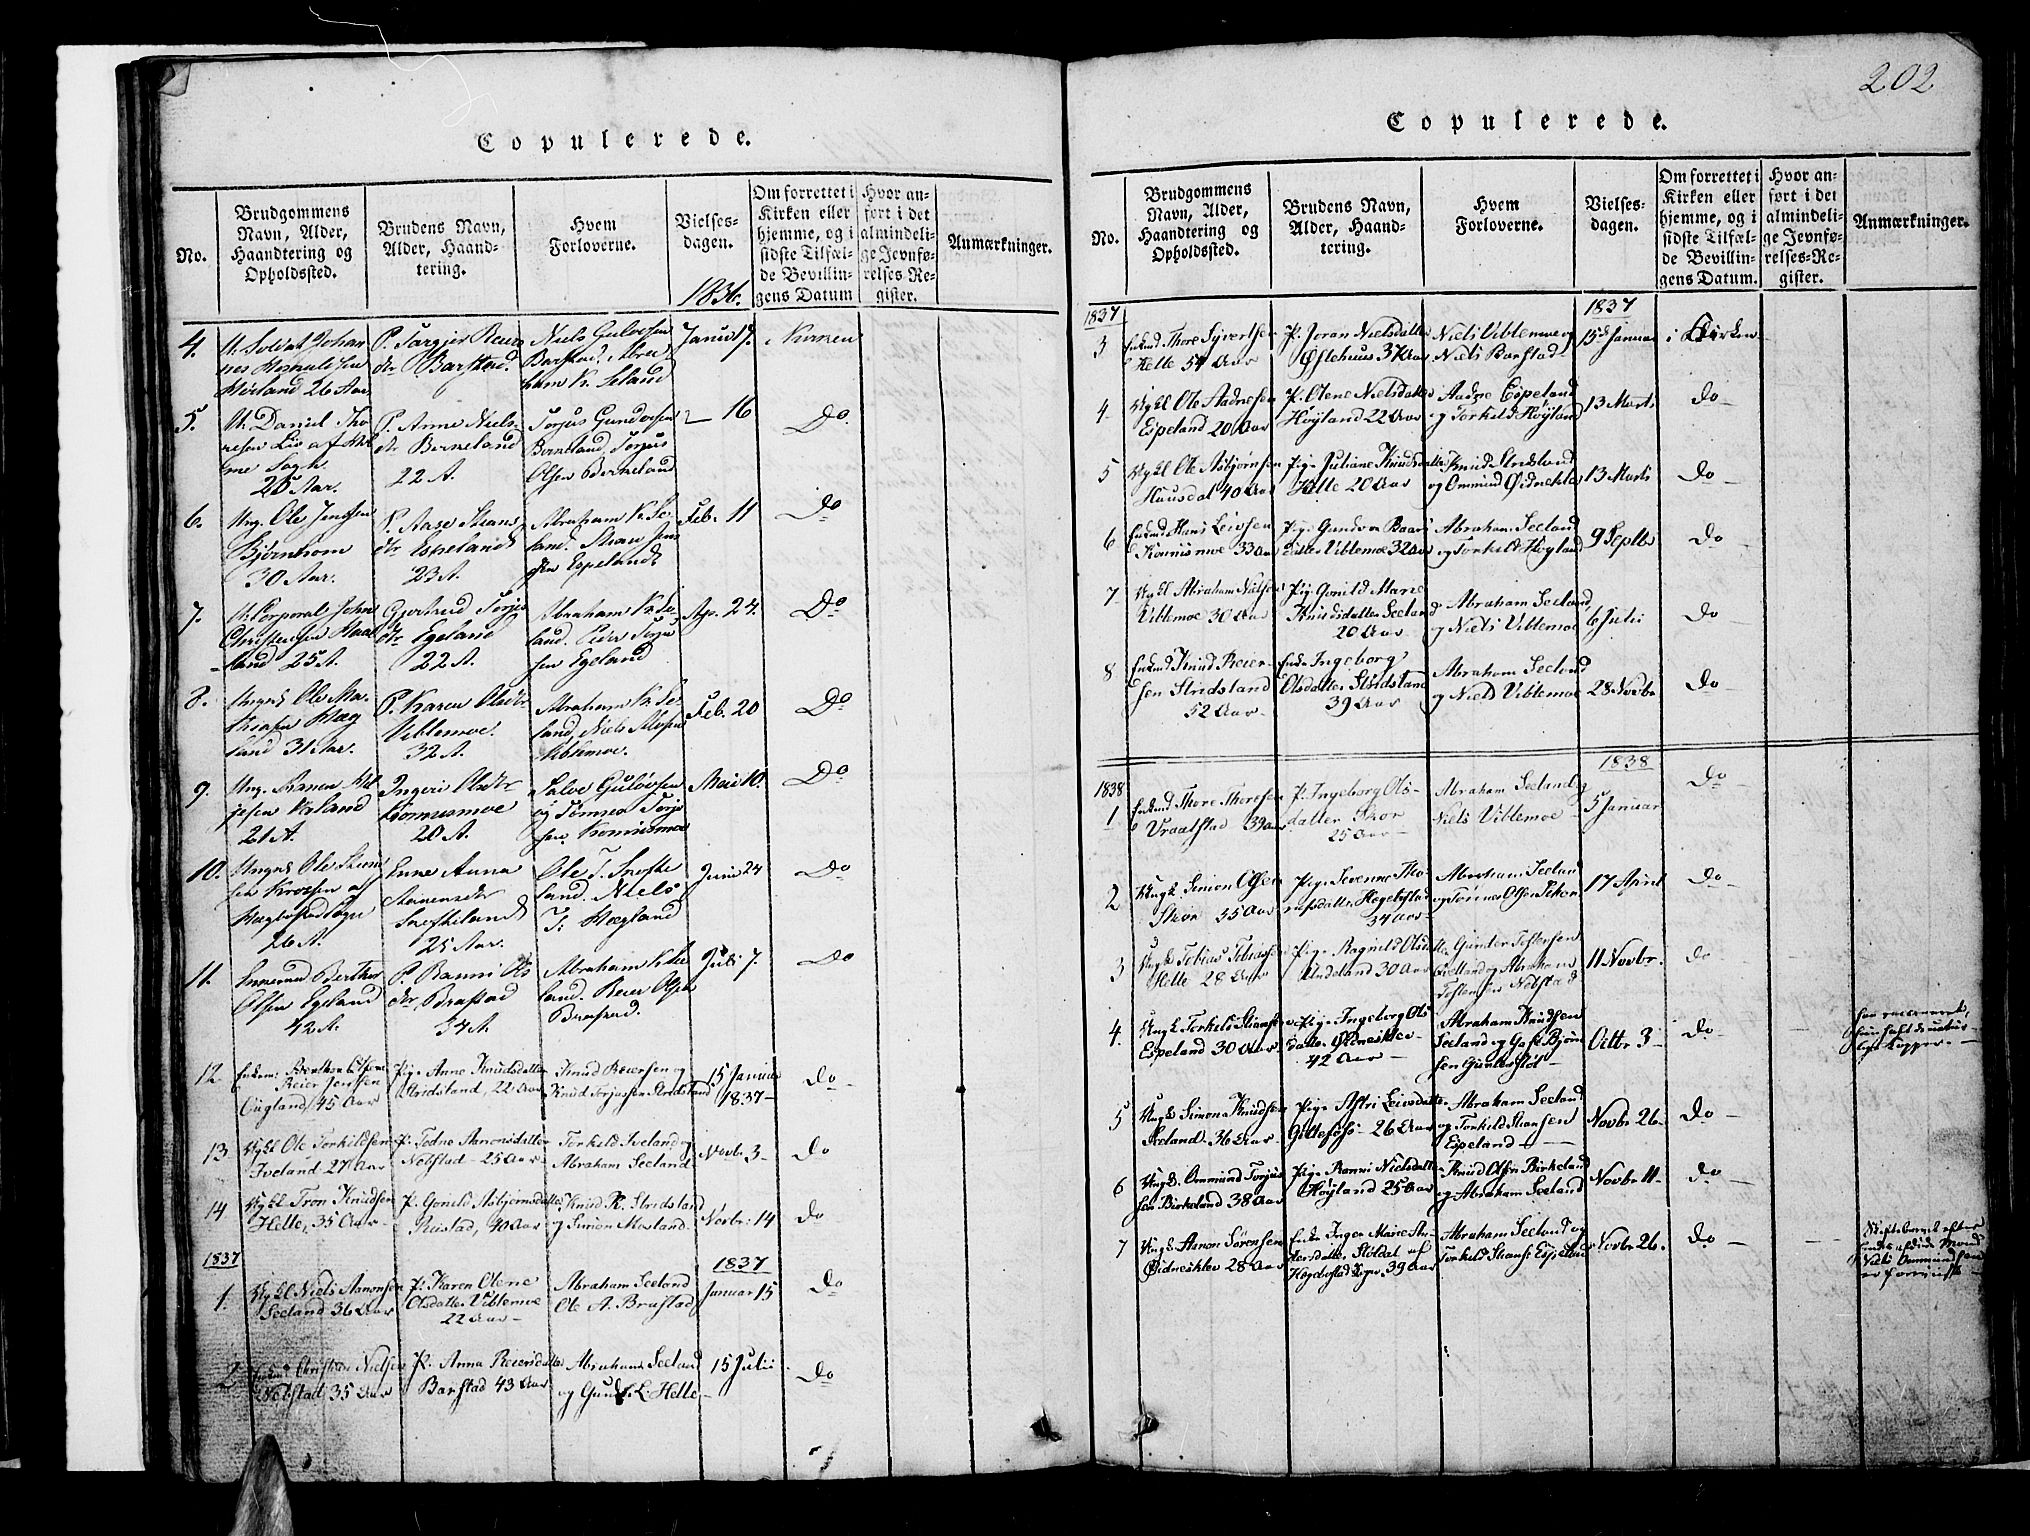 202
Copulerede.
No.
Brudgommens
Navn, Alder,
Haandtering og
Opholdssted.
Brudens Navn,
Alder, Haand-
tering.
Hvem
Forloverne.
Vielses-
dagen.
1836.
Om forrettet i
Kirken eller
hjemme, og i
sidste Tilfæl-
de Bevillin-
gens Datum
Hvor an-
ført i det
almindeli-
ge Jevnfø-
relses-Re-
gister.
Anmærkninger.
4.
U. Soldat Johan
26 Aar
P. Torgjer Reiers
dtr Barstad.
Niels Gulovsen
Barstad, Abra
ham K. Seland
Januar 7.
i Kirken
5.
U. Daniel Tho
resen Liv af
me Sogn.
25 Aar.
P. Anne Niels
dtr Birneland
22 A.
Torjus Gundersen
Birneland, Torjus
Olsen Birneland
16
Do.
6.
Ung. Ole Jensen
Bjørnhom
30 Aar.
P. Aase Stians
dtr Espeland
23 A.
Abraham K. Se
land. Stian Jen
sen Espeland
Feb. 11
Do
7.
U. Corporal John
Christensen Haa
land 25 A.
Gjertrud Torjus
dtr Egeland
22 A.
Abraham K. Se
land. Peder Torju
sen Egeland
Ap. 24.
Do
8.
Ungk. Ole
Hæg
land 31 Aar.
P. Karen Olsdtr
Viblemoe.
32 A.
Abraham K. Se
land, Niels
Viblemoe.
Feb. 20
Do
9.
Ung.
21 A.
Ingeri Olsdtr
Konnismoe
20 A.
Salve Guløvsen
og Tønnes Torju
sen Konnismoe
Mai 10.
Do
10.
Ungk. Ole
af
Hægbostad Sogn
26 A.
Enne Anna
Aanensdtr
25 Aar.
Ole T.
land. Niels
T. Hægland
Juni 24
Do
11.
Enkemand Berthor
Olsen Egeland
42 A.
P. Ranni Ols
dtr Brastad
34 A.
Abraham K. Se
land. Reier Olsen
Brastad.
Juli 7.
Do
12
Reier Jensen
Øugland, 45 Aar
Pige Anne Knudsdatter
Stridsland, 22 Aar
Knud Reiersen og
Knud Torjussen Stridsland
15 Januar
1837-
Do
13
Ugkl Ole Torkildsen
Iveland 27 Aar
P. Todne Aanonsdatter
Nebstad - 25 Aar -
Torkild Iveland og
Abraham Seeland
Novbr 3-
Do
14
Ugkl Tron Knudsen
Helle, 35 Aar-
P. Gonild Asbjørnsdatter
Rustad, 40 Aar
Knud R. Stridsland
og Simon Mosland.
Novbr: 14
Do
1837
1837
1.
Ugkl Niels Aanonsen
Seeland 36 Aar
P. Karen Olene
Olsdatter Viblemoe
22 Aar-
Abraham Seeland
Ole A. Brastad
Januar 15
Do
2
Enkmd Christen Nielsen
Nebstad, 35 Aar
P. Anna Reiersdatter
Barstad 43 Aar
Abraham Seeland
og Gund. L. Helle-
15 Julii
Do
Copulerede.
No.
Brudgommens
Navn, Alder,
Haandtering og
Opholdssted.
Brudens Navn,
Alder, Haand-
tering.
Hvem
Forloverne.
Vielses-
dagen.
Om forrettet i
Kirken eller
hjemme, og i
sidste Tilfæl-
de Bevillin-
gens Datum.
Hvor an-
ført i det
almindeli-
ge Jevnfø-
relses-Re-
gister.
Anmærkninger.
1837
1837
3
Enkmd Thore Syvertsen
Helle 54 Aar
P. Joran Nielsdatter
Øftehuus 37 Aar
Niels Viblemoe og
Niels Barstad-
15de Januar
i Kirken
4
Ugkl Ole Aadnesen
Espeland 20 Aar
P. Olene Nielsdatter
Høyland 22 Aar
Aadne Espeland
og Torkild Høyland
13 Marts
Do
5
Ugkl Ole Asbjørnsen
Hausdal 40 Aar
Pige Juliane Knudsdatter
Helle 20 Aar
Knud Stridsland
og Ommund Øidneklev
13 Marts
Do
6
Enkmd Hans Leivsen
Konnismoe 33 Aar
Pige Gundvor Baars
datter Viblemoe 32 Aar
Abraham Seeland
og Torkild Høyland
9 Septbr
Do
7
Ugkl Abraham Nielsen
Viblemoe 30 Aar
Pige Gonild Marie
Knudsdatter Seeland
20 Aar
Abraham Seeland
og Niels Viblemoe
6 Julii
Do
8
Enkmd Knud Reier-
sen Stridsland
52 Aar-
Enke Ingeborg
Olsdatter Stridsland
39 Aar
Abraham Seeland
og Niels Viblemoe
28 Novbr
Do
1838
1838
1
Enkmd Thore Thoresen
Vraalstad 39 Aar
P. Ingeborg Ols-
datter Skor
25 Aar-
Abraham Seeland og
Niels Viblemoe-
5 Januar
Do
2
Ungk. Simon Olsen
Skør 35 Aar
Pige Severine Tho-
masdatter Hegebostad
34 Aar-
Abraham Seeland
og Tønnes Olsen Skør
17 April
Do
3
Ungk Tobias Tobiassen
Helle 28 Aar
Pige Ragnild Olsdatter
Undeland 30 Aar
Gunder Tostensen
og Abraham
Tostensen Nebstad
11 Novbr.
Do
4.
Ungk Torkild Stiansen
Espeland 30 Aar
Pige Ingeborg Ols-
datter Øidnesklev-
42 Aar-
Abraham Knudsen
Seeland og Bjørn
sen
Octbr 3-
Do
har vaccineret,
hun havt de natur-
lige Kopper.-
5
Ungk Simon Knudsen
Seeland 36 Aar
Pige Astri Leivsdatter
26 Aar
Abraham Seeland
og Torkild Stiansen
Espeland-
Novbr 26.
Do
6
Ungk. Ommund Torjus
sen Birkeland 38 Aar
Pige Ranni Nielsdatter
Høyland 25 Aar
Knud Olsen Birkeland
og Abraham Seeland
Novbr 11-
Do
7
Ungk Aanon Sørensen
Øidneskley 28 Aar
Enke Inger Marie
datter Støldal af
Hegebostad Sogn, 39 Aar
Abraham Seeland og
Torkild Stians. Espeland
Novbr 26.
Do
Skiftebrevet efter
hendes afdøde Mand
Niels Ommundsen
er forevist-